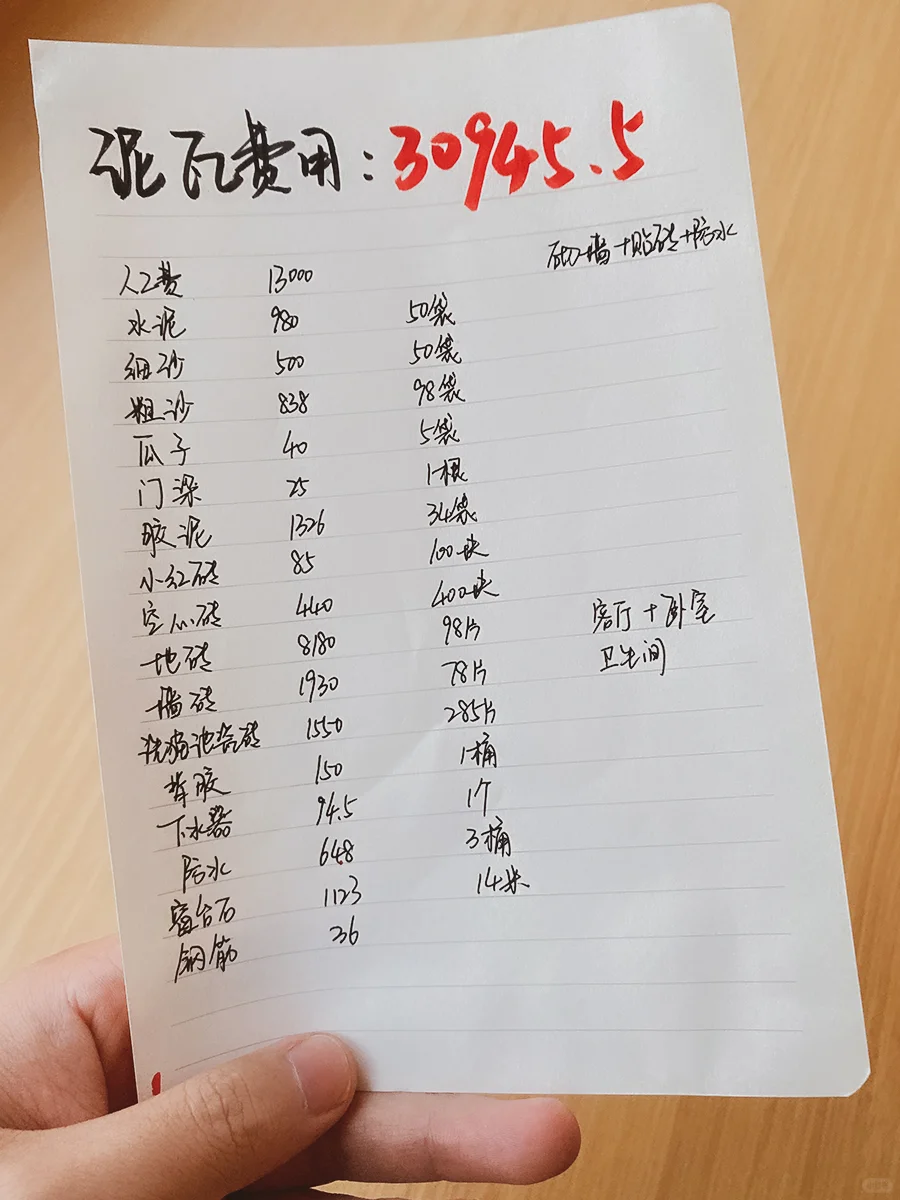 泥瓦费用:30945.5
砌墙+贴砖+防水
人工费 13000
水泥 980 50袋
细沙 500 50袋
粗沙 838 98袋
瓜子 40 5袋
门梁 25 1根
胶泥 1326 34袋
小红砖 85 100块
空心砖 440 400块
地砖 8180 98片 客厅+卧室
墙砖 1930 78片 卫生间
洗猫池瓷砖 1550 285片
背胶 150 1桶
下水器 94.5 1个
防水 648 3桶
窗台石 1123 14米
钢筋 36